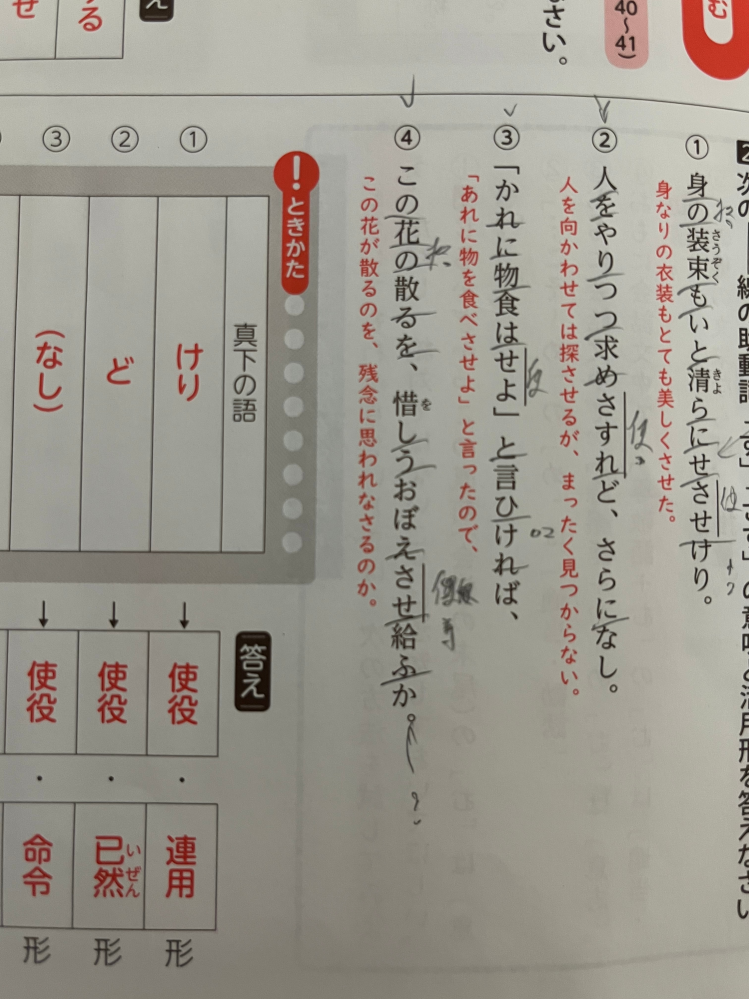 む
40〜41)
なさい。
る
せ
え
2 次の 線の助動詞「す」「さす」の意味と活用形を答えなさい
① 身の装束もいと清らにせさせけり。
さうぞく
きよ
身なりの衣装もとても美しくさせた。
② 人をやりつつ求めさすれど、さらになし。
人を向かわせては探させるが、まったく見つからない。
③ 「かれに物食はせよ」と言ひければ、
「あれに物を食べさせよ」と言ったので、
④ この花の散るを、惜しうおぼえさせ給ふか。
を
この花が散るのを、残念に思われなさるのか。
! ときかた
真下の語
① けり
② ど
③ (なし)
答え
使役・連用形
使役・已然形
いぜん
使役・命令形